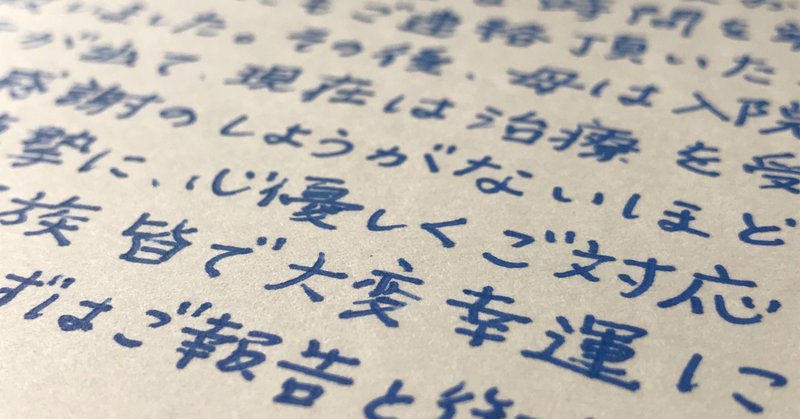 時間を
いました。 ご連絡頂いた
が出て、現在は治療を受
その後、母は入院
感謝のしようがないほど
摯に、心優しくご対応
族皆で大変幸運に
ずはご報告と